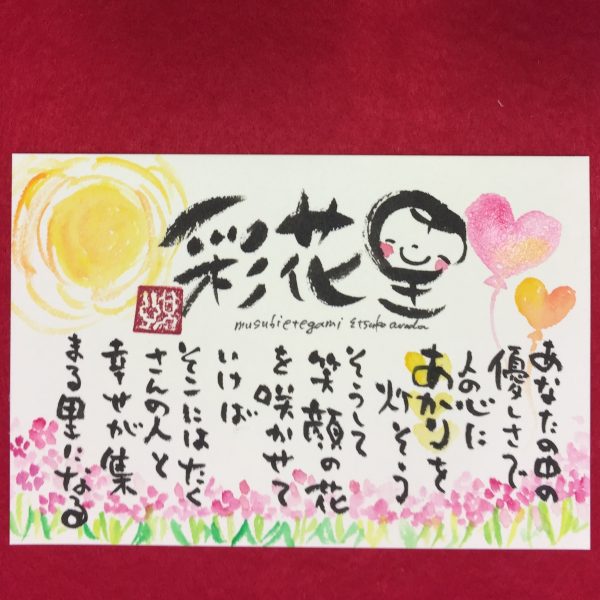 彩花里
musubietegami Etsuko arada
あなたの中の
優しさで
人の心に
あかりを
灯そう
そうして
笑顔の花
を咲かせて
いけば
そこにはたく
さんの人と
幸せが集
まる里になる